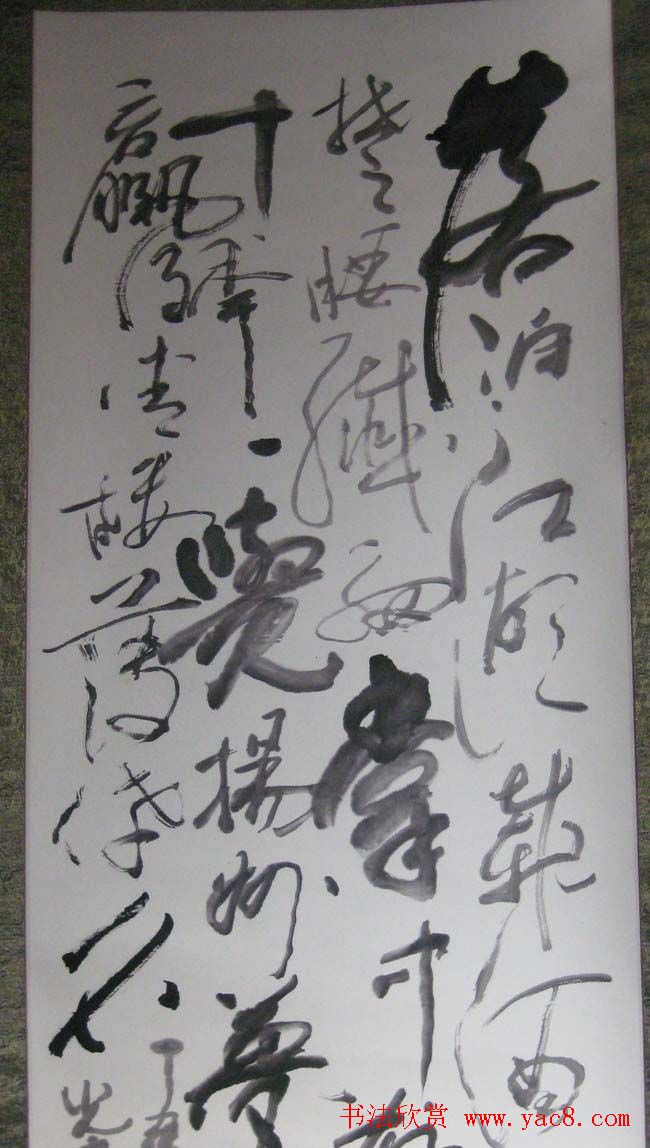 落泊江湖載酒
楚腰纖細掌中
十年一覺揚州夢
贏得青樓薄倖名
丁
书法欣赏 www.yac8.com